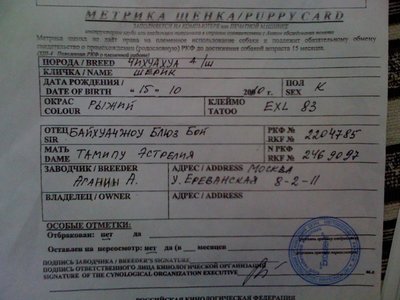 МЕТРИКА ЩЕНКА/PUPPYCARD
ЗАПОЛНЯЕТСЯ НА КОМПЬЮТЕРЕ ИЛИ ПЕЧАТНОЙ МАШИНКЕ
Метрика щенка не даёт права на племенное использование собаки и подлежит обязательному обмену
свидетельство о происхождении (родословную) РКФ до достижения собакой возраста 15 месяцев.
ПОРОДА / BREED ЧИХУАХУА Д/Ш
КЛИЧКА / NAME ШЕРИК
ДАТА РОЖДЕНИЯ / DATE OF BIRTH "15" 10
ПОЛ SEX К
ОКРАС COLOUR РЫЖИЙ
КЛЕЙМО TATOO EXL 83
ОТЕЦ SIR БАЙХУАЧЖОУ БЛЮЗ БОЙ
РКФ № RKF № 2204785
МАТЬ DAME ТАМИПУ АСТРЕЛИЯ
N РКФ RKF № 2469097
ЗАВОДЧИК / BREEDER АРАНИН А.
АДРЕС / ADDRESS МОСКВА
У. ЕРЕВАНСКАЯ 8-2-11
ВЛАДЕЛЕЦ / OWNER
АДРЕС / ADDRESS
ОСОБЫЕ ОТМЕТКИ:
Отбракован: нет да
Оставлен на пересмотр: нет да (в месяцев
ПОДПИСЬ ЗАВОДЧИКА / BREEDER'S SIGNATURE
ПОДПИСЬ ОТВЕТСТВЕННОГО ЛИЦА КИНОЛОГИЧЕСКОЙ ОРГАНИЗАЦИИ
SIGNATURE OF THE CYNOLOGICAL ORGANIZATION EXECUTIVE
РОССИЙСКАЯ КИНОЛОГИЧЕСКАЯ ФЕДЕРАЦИЯ